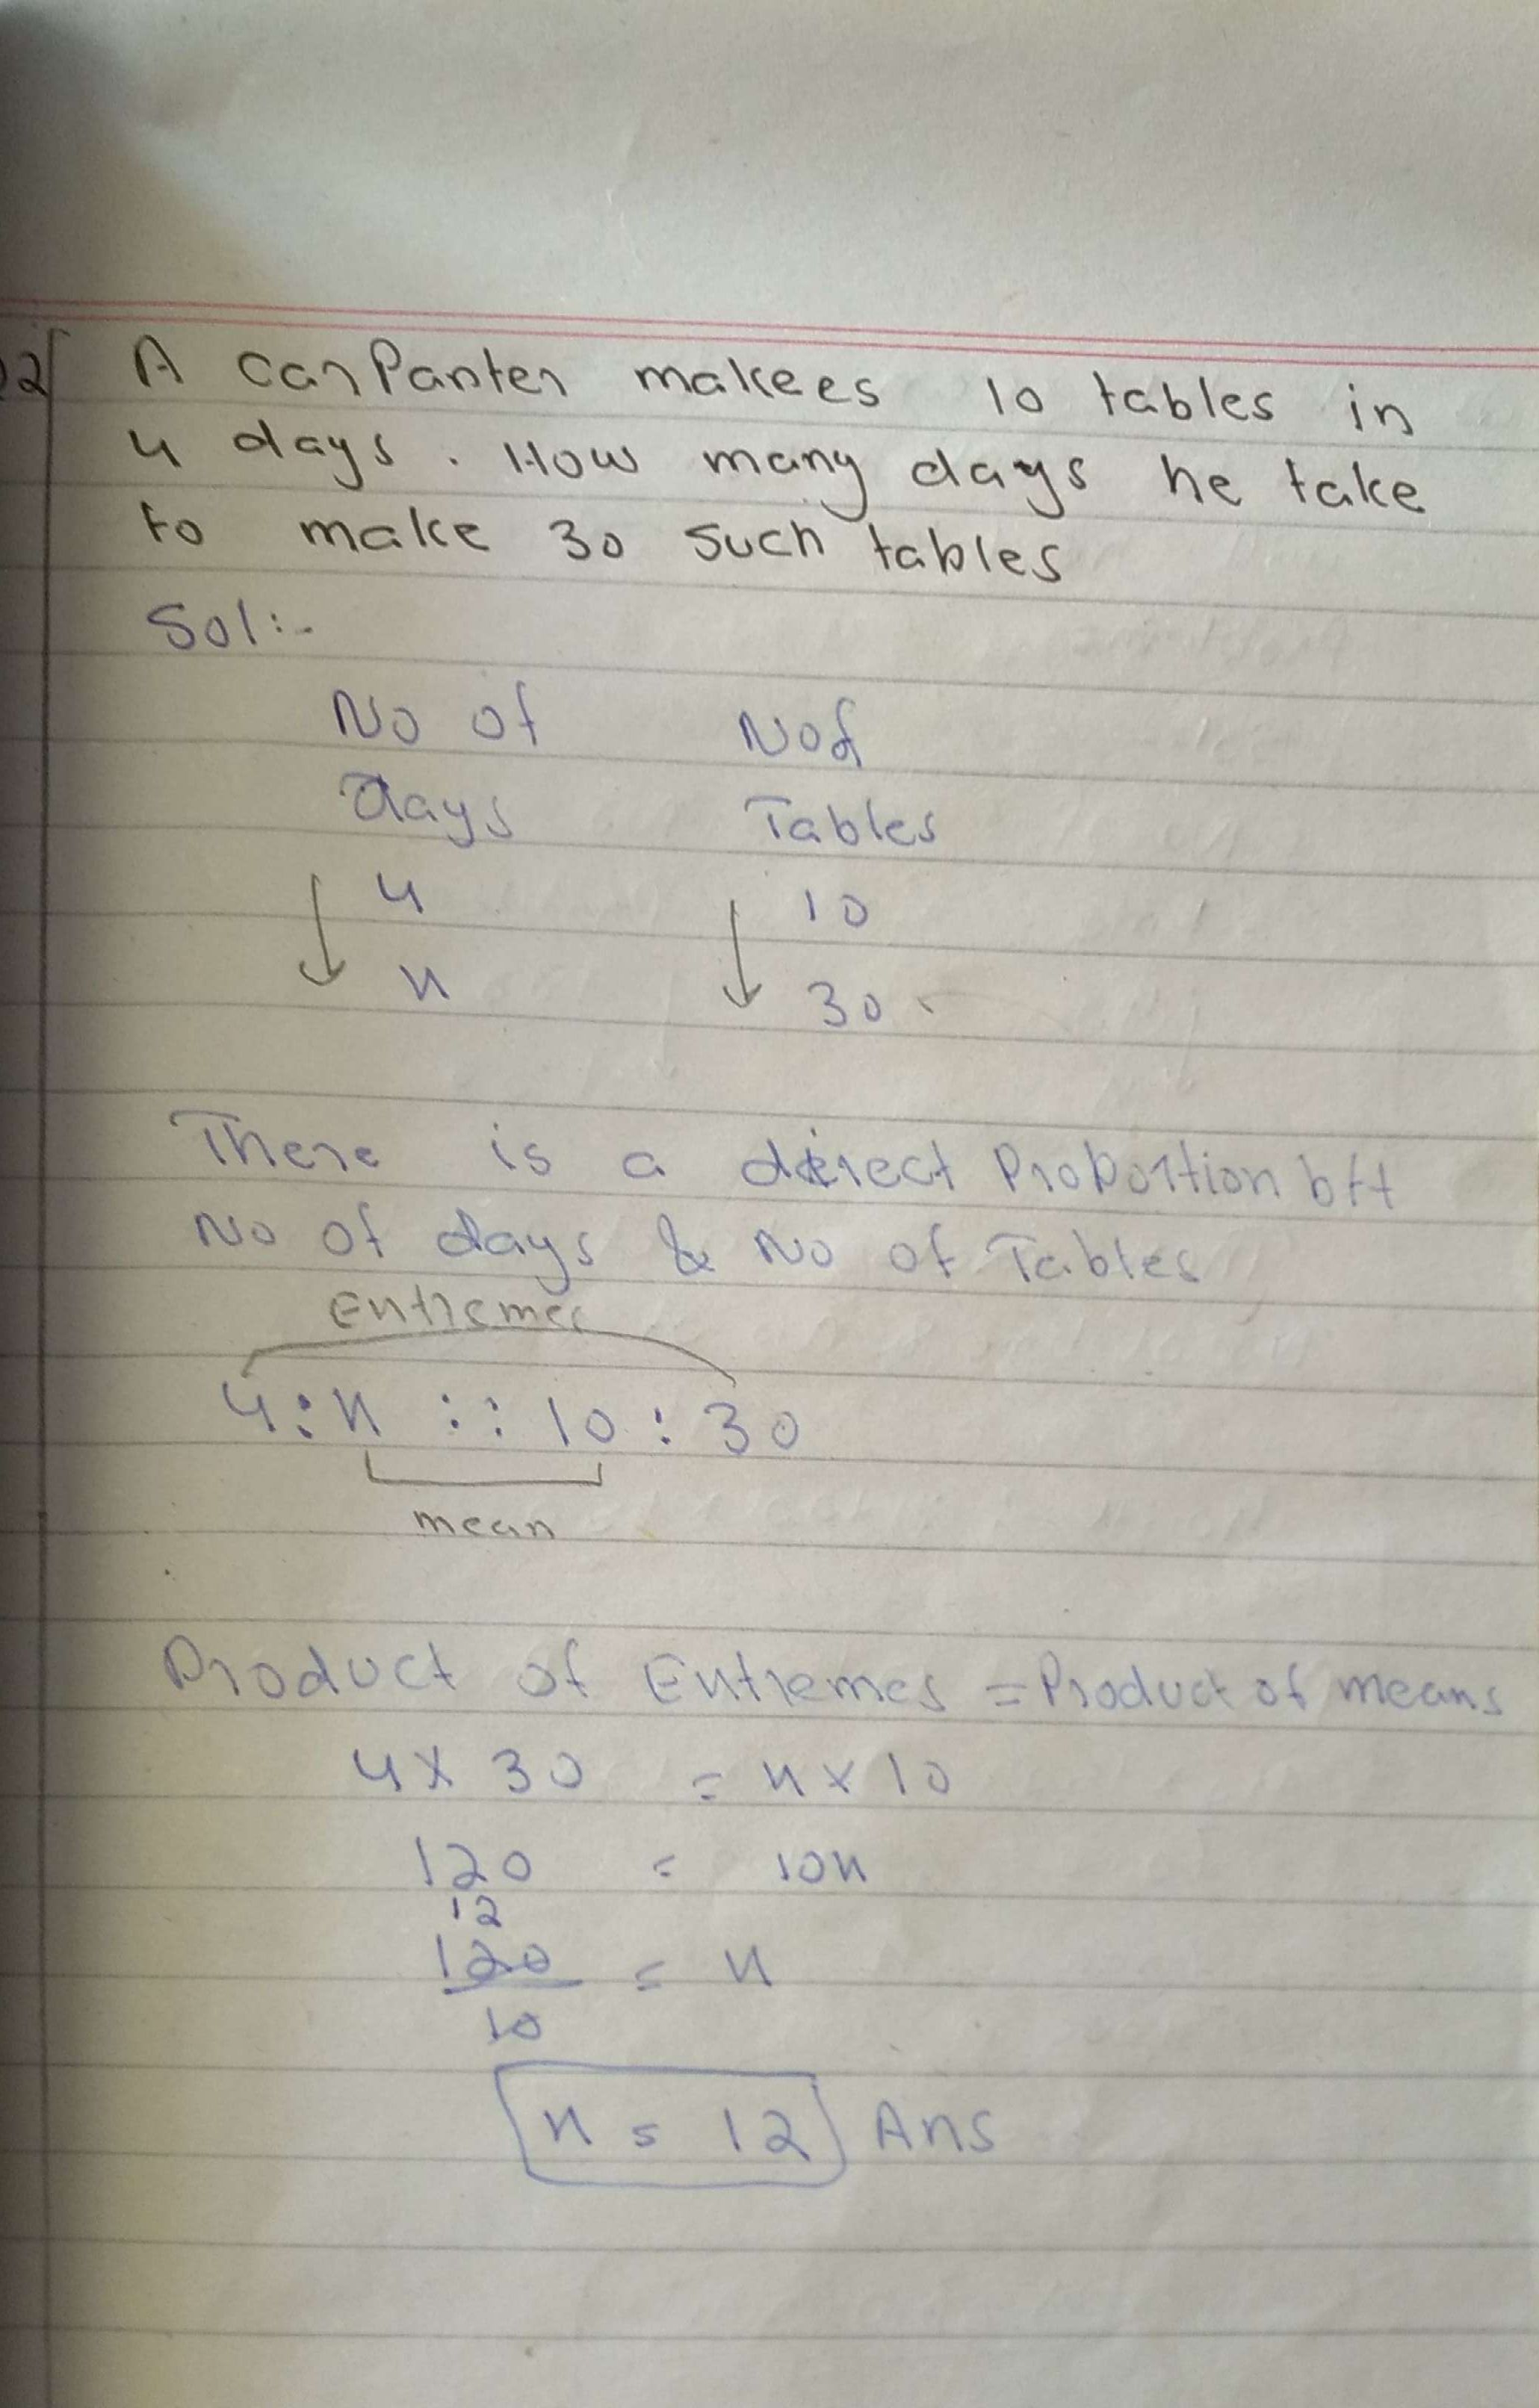 2
A carPanter makees 10 tables in
4 days. How many days he take
to make 30 such tables
Sol:-
No of Nof
Days Tables
4 10
x 30
There is a direct Proportion btt
No of days & No of Tables
Extremes
4 : x :: 10 : 30
mean
Product of Extremes = Product of means
4 × 30 = x × 10
120 = 10x
12
120 = x
10
x = 12 Ans